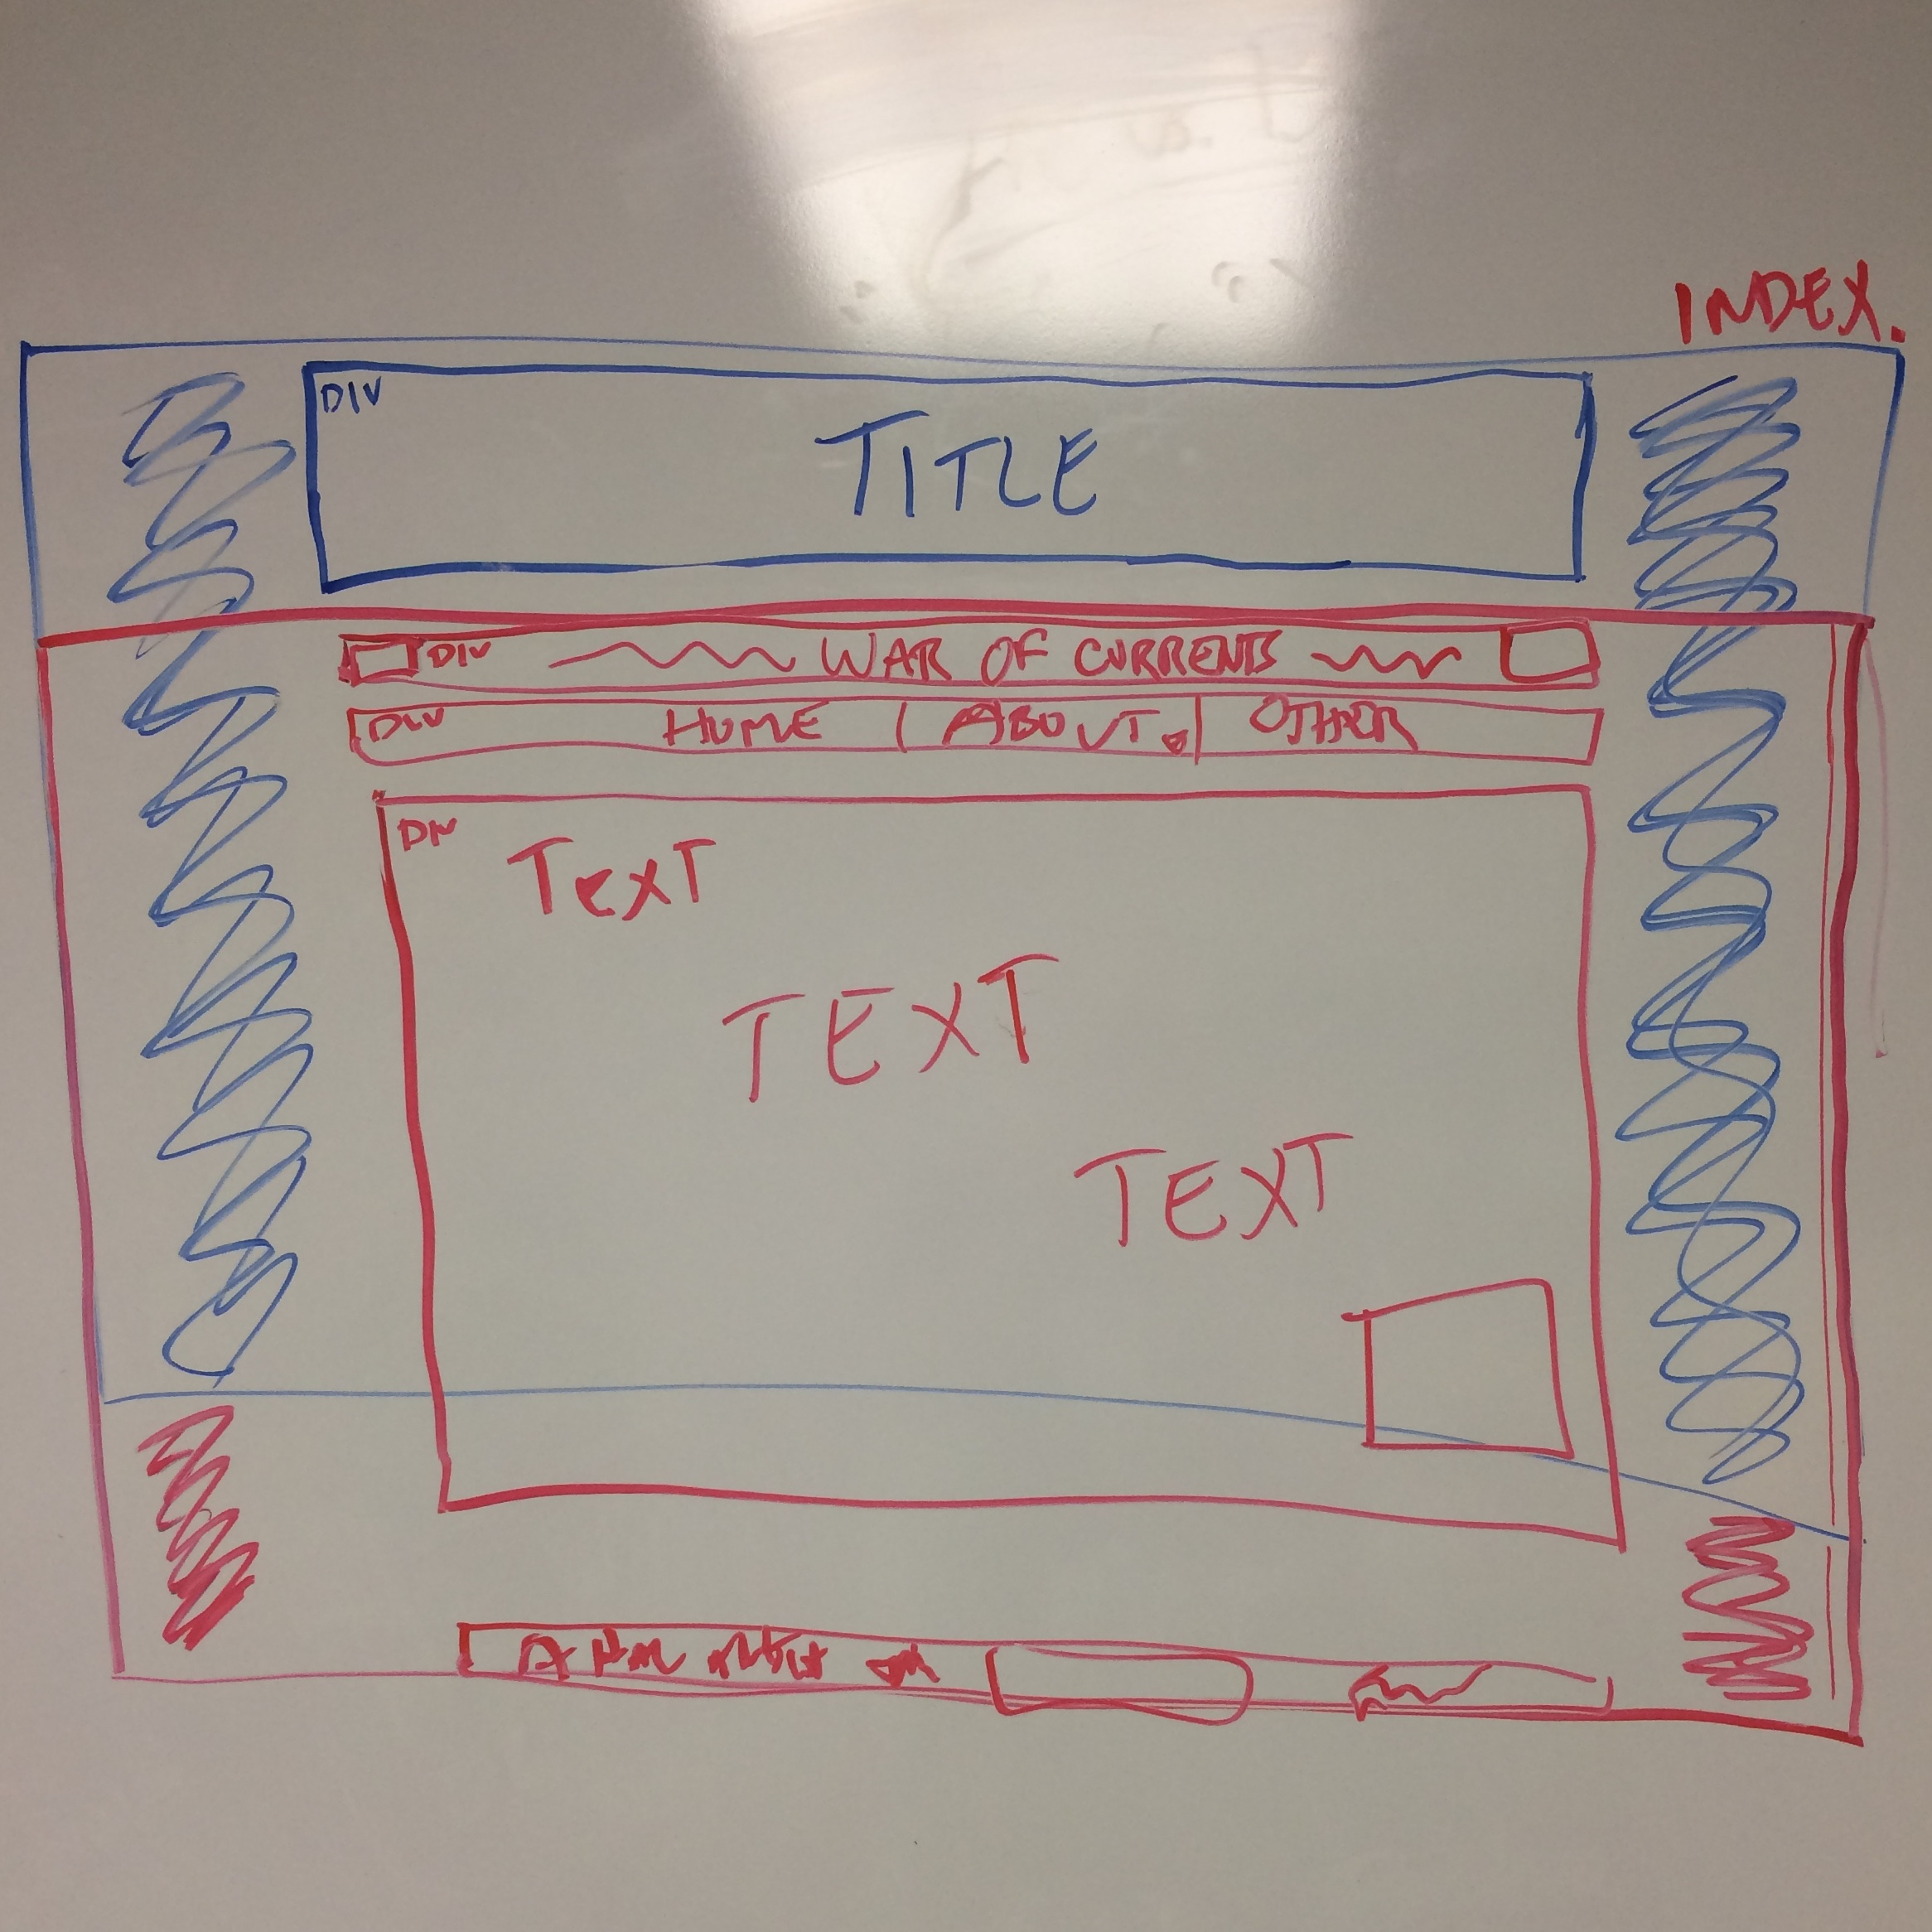 INDEX.
DIV
TITLE
DIV WAR OF CURRENTS
DIV HOME ABOUT OTHER
DIV
TEXT
TEXT
TEXT